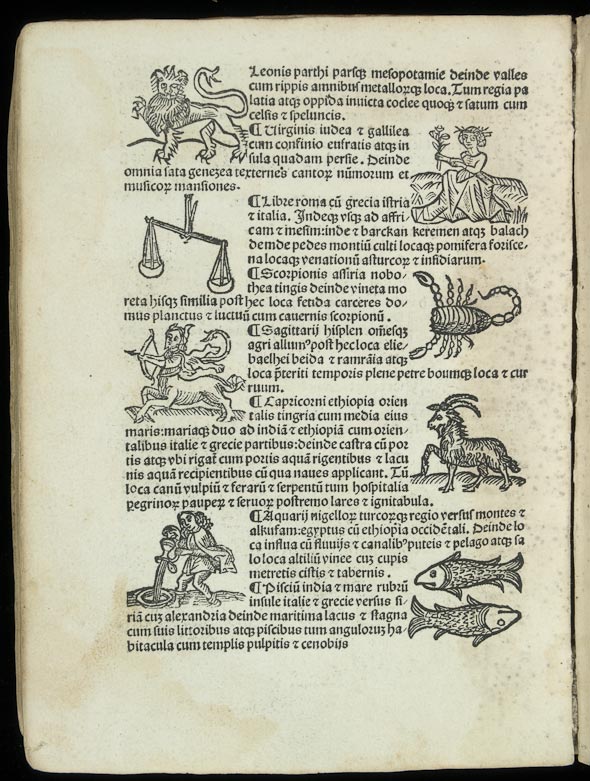 Leonis parthi parsqȝ mesopotamie deinde valles
cum rippis amnibusꝗ metallorꝗȝ loca. Tum regia pa
latia atqȝ oppida inuicta coclee quoqȝ ⁊ satum cum
celsis ⁊ speluncis.
¶ Uirginis iudea ⁊ gallilea
cum confinio eufratis atqȝ in
sula quadam persie. Deinde
omnia sata geneȝea texternes cantoꝝ nūmorum et
musicoꝝ mansiones.
¶ Libre roma cū grecia istria
⁊ italia. Indeqȝ vsqȝ ad affri⸗
cam ⁊ mesim:inde ⁊ barckan keremen atqȝ balach
demde pedes montiū culti locaqȝ pomifera forisce⸗
na locaqȝ venationū asturcoꝝ ⁊ insidiarum.
¶ Scorpionis assiria nobo⸗
thea tingis deinde vineta mo
reta hisqȝ similia post hec loca fetida carceres do⸗
mus planctus ⁊ luctuū cum cauernis scorpionū.
¶ Sagittarij hisplen om̄esqȝ
agri post hec loca elie
baelhei beida ⁊ ramrāia atqȝ
loca p̄teriti temporis plene petre boumqȝ loca ⁊ cur
ruum.
¶ Capricorni ethiopia orien
talis tingria cum media eius
maris:mariaqȝ duo ad indiā ⁊ ethiopiā cum orien⸗
talibus italie ⁊ grecie partibus:deinde castra cū por
tis atqȝ vbi rigat̄ cum portis aquā rigentibus ⁊ lacu
nis aquā recipientibus cū qua naues applicant. Tū
loca canū vulpiū ⁊ ferarū ⁊ serpentū tum hospitalia
pegrinoꝝ pauperꝝ ⁊ seruoꝝ postremo lares ⁊ ignitabula.
¶ Aquarij nigelloꝝ turcorꝗȝ regio versus montes ⁊
alkufam:egyptus cū ethiopia occidētali. Deinde lo
ca influa cū fluuijs ⁊ canalibꝰ puteis ⁊ pelago atqȝ sa
lo loca altiliū vinee cuȝ cupis
metretis cistis ⁊ tabernis.
¶ Pisciū india ⁊ mare rubrū
insule italie ⁊ grecie versus si⸗
riā cuȝ alexandria deinde maritima lacus ⁊ stagna
cum suis littoribus atqȝ piscibus tum angulorum ha⸗
bitacula cum templis pulpitis ⁊ cenobijs